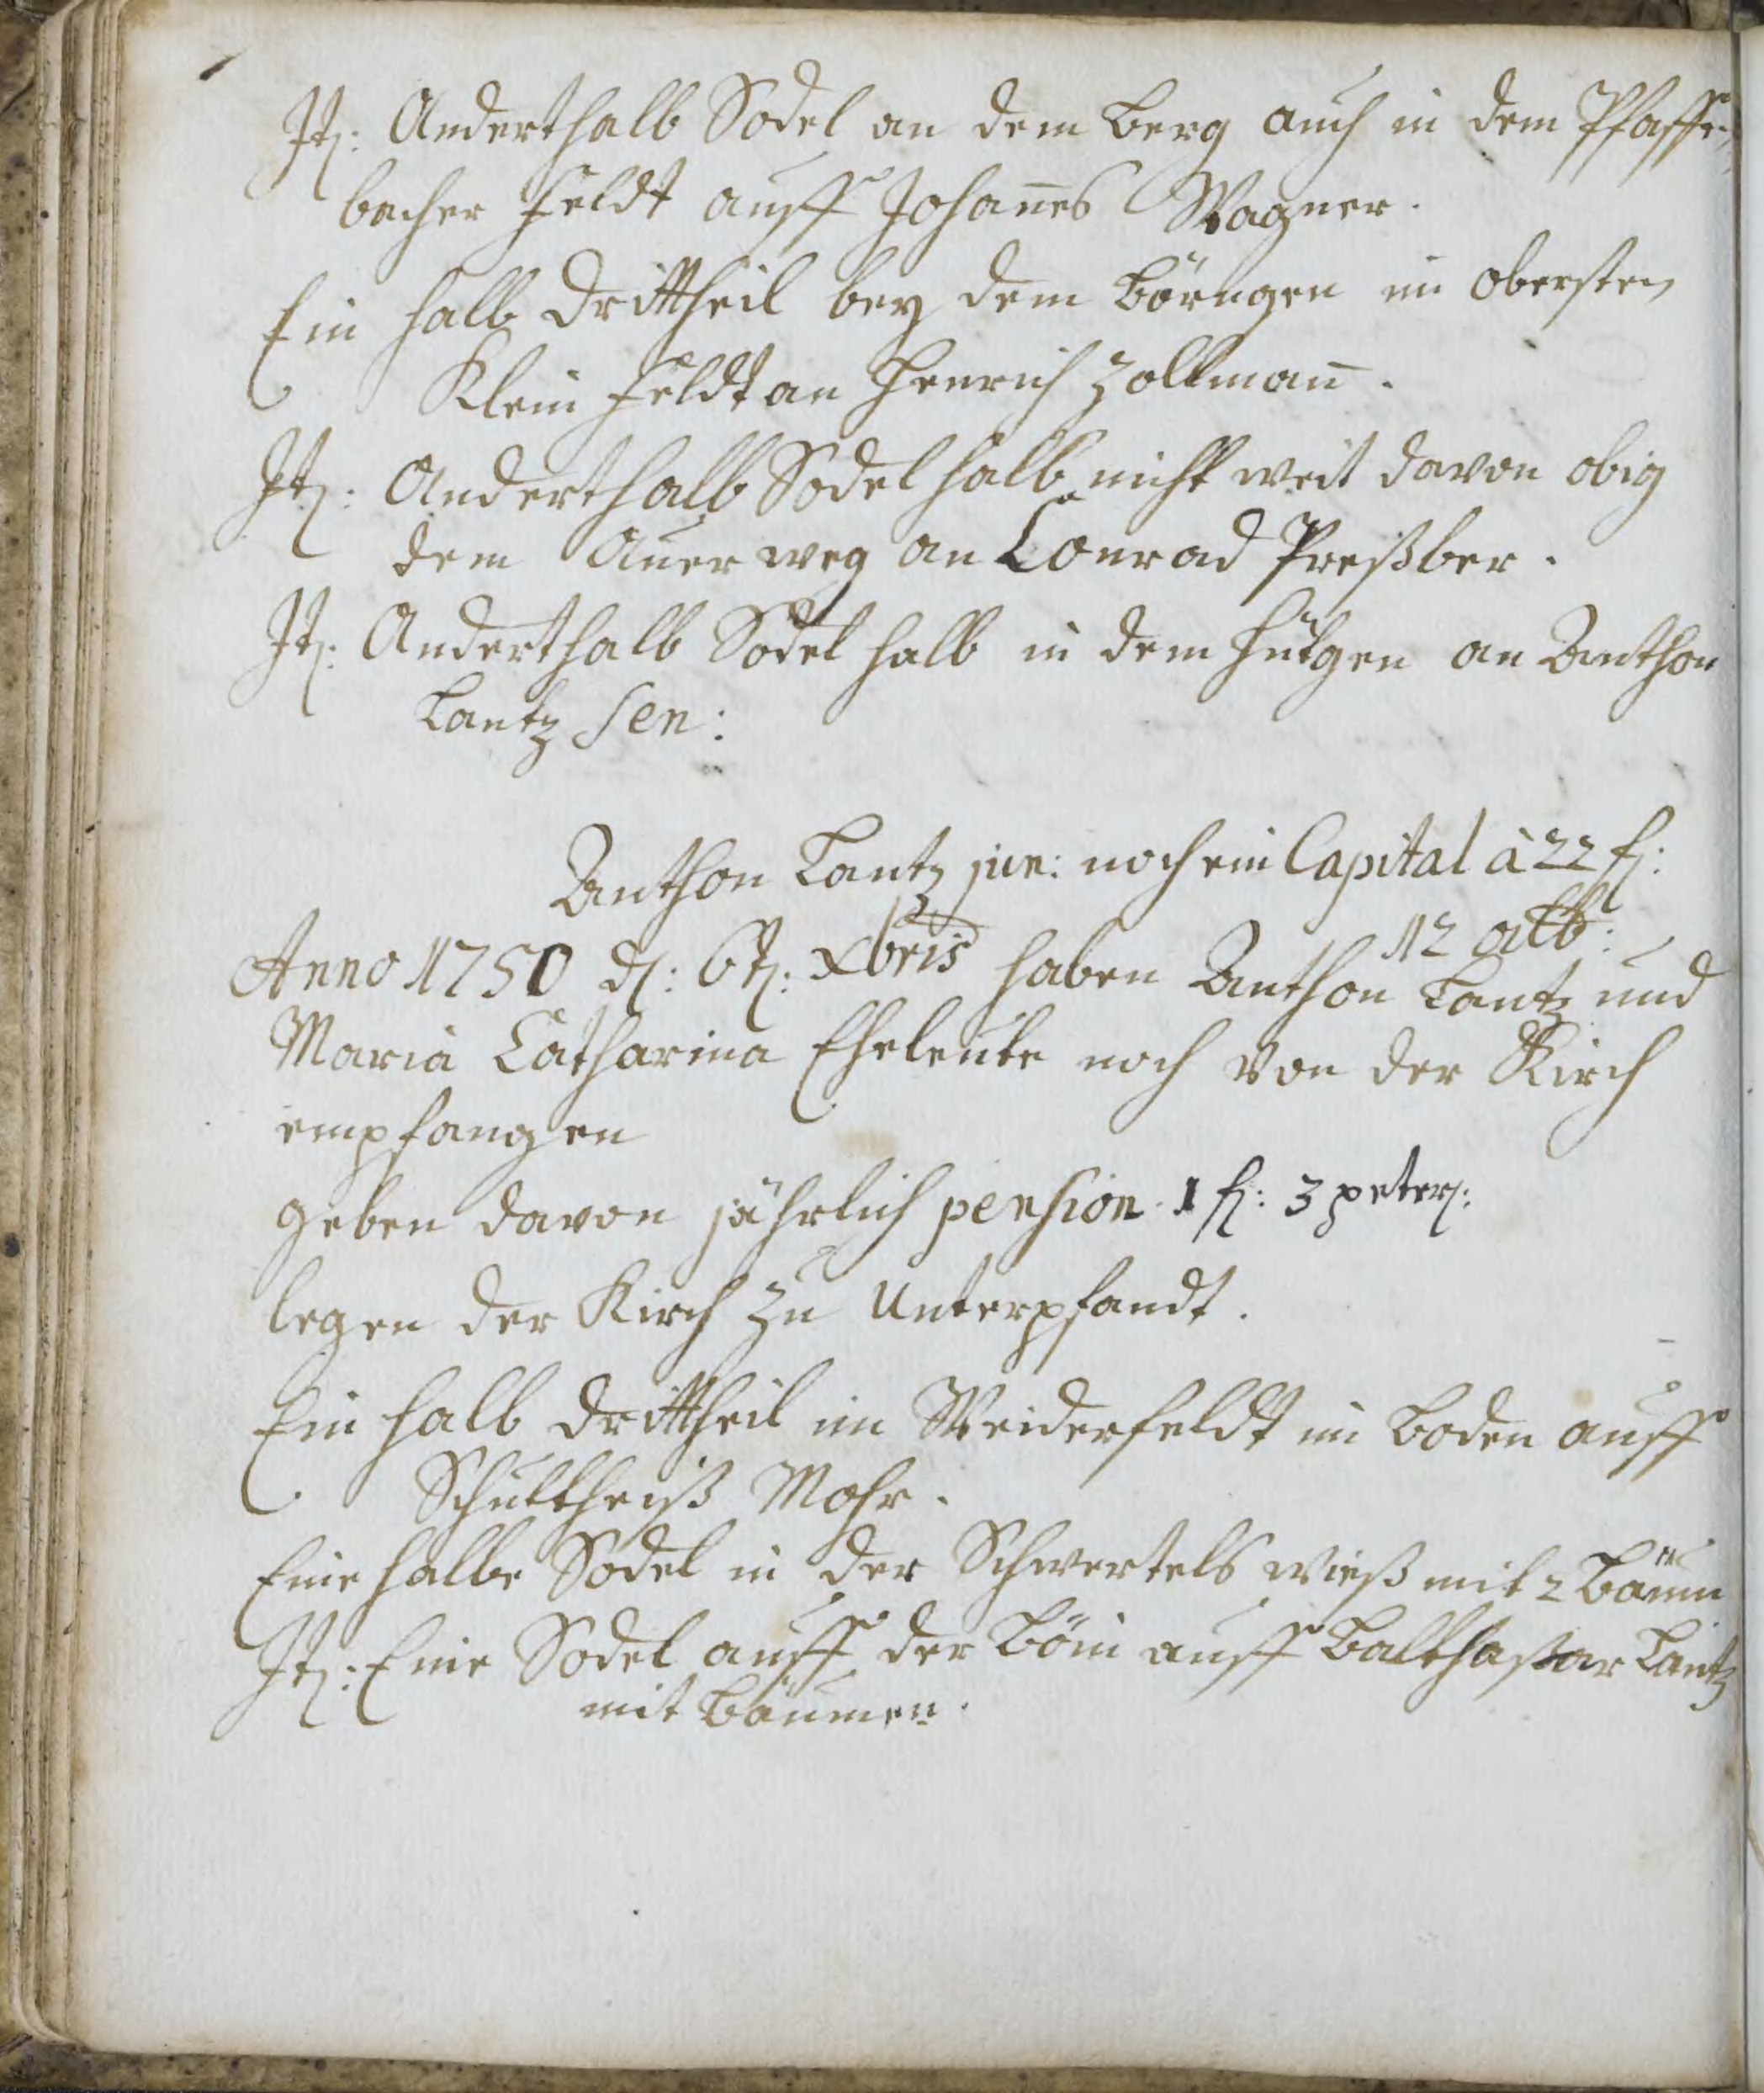 It: Anderthalb Sodel an dem Berg auch in dem Pfaffen
bacher Feldt auff Johan̄es Wagner.
Ein halb drittheil bey dem Börngen im obersten
Klein Feldt an Henrich Zollman̄.
It: Anderthalb Sodel halb nicht weit davon obig
dem Auer weg an Conrad Preßber.
It: Anderthalb Sodel halb in dem Hütgen an Anthon
Lantz sen:
Anthon Lantz jun: noch ein Capital à 22 fl:
12 alb:
Anno 1750 d: 6t: Xbris haben Anthon Lantz und
Maria Catharina Eheleute noch von der Kirch
empfangen
geben davon jährlich pension 1 fl: 3 peter:
legen der Kirch zu Unterpfandt.
Ein halb drittheil im Weiderfeldt im Boden auff
Schultheiß Mohr.
Eine halbe Sodel in der Schwertels wieß mit 2 Bäum
It: Eine Sodel auff der Böin auff Balthasar Lantz
mit Bäumen.